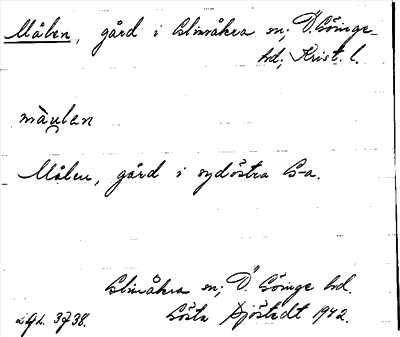 Målen, gård i Glimåkra sn; Ö. Göinge
hd; Krist. l.
måulen
Målen, gård i sydöstra G-a.
Glimåkra sn; Ö. Göinge hd.
Gösta Sjöstedt 1942.
3738.